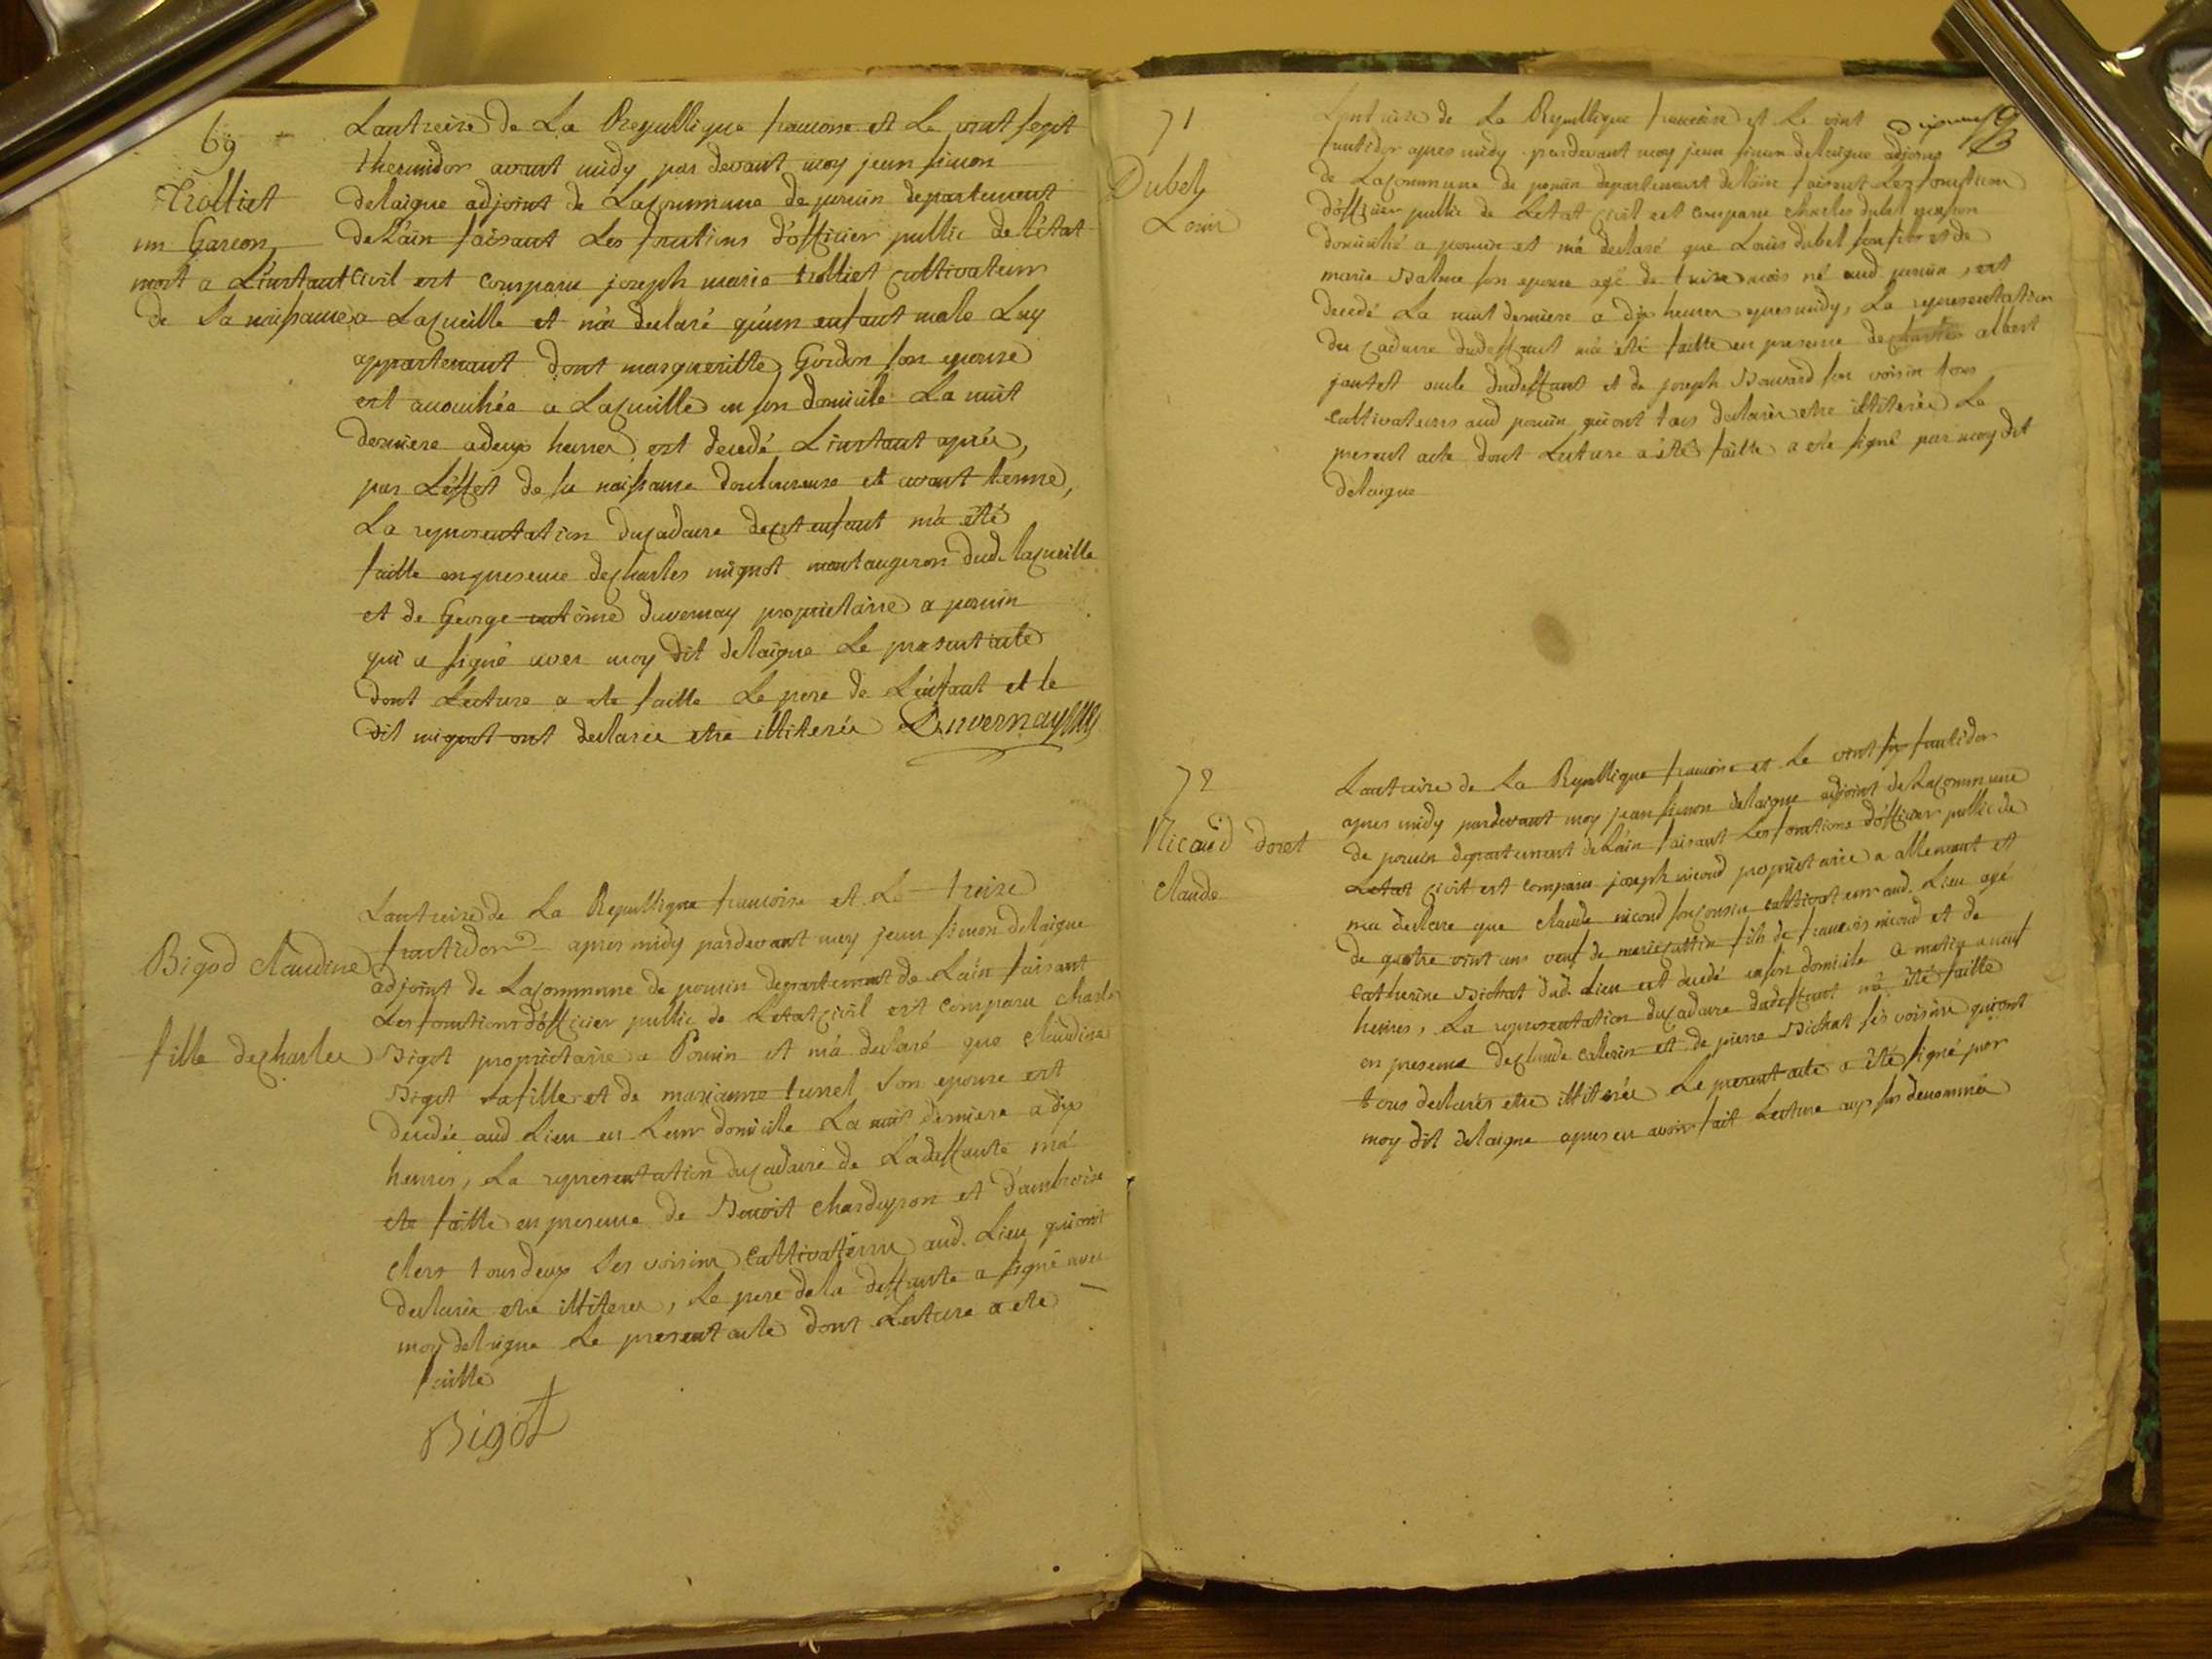 69
Trolliet
un Garcon
mort a L'instant
de Sa naissance
Lantreize de La Republique francoise et Le vint sept
thermidor avant midy par devant moy jean simon
delaigue adjoint de Lacommune de poncin departement
de Lain faisant Les fonctions d'officier public de l'état
civil est comparu joseph marie trolliet cultivateur
a Lacueille et m'a declaré qu'un enfant male Luy
appartenant dont margueritte Gordon son epouse
est accouchée a Lacueille en son domicile La nuit
derniere a deux heures est decedé L'instant après,
par L'effet de sa naissance douloureuse et avant terme,
La representation ducadavre decet enfant m'a été
faitte en presence decharles mignot montaugeron dud. lacueille
et de George antoine duvernay proprietaire a poncin
qui a signé avec moy dit delaigue Le present acte
dont Lecture a ete faitte Le pere de L'enfant et le
dit mignot ont declarés etre illiterés Duvernay
Bigod Claudine
fille decharles
Lantreize de La Republique francoise et Le treize
fructidor apres midy pardevant moy jean simon delaigue
adjoint de Lacommune de poncin departement de Lain faisant
Les fonctions d'officier public de Letat civil est comparu charles
Bigot proprietaire a Poncin et m'a declaré que Claudine
Bigot safille et de marianne tunel Son epouse est
decedée aud. Lieu en Leur domicile La nuit derniere a dix
heures, La representation ducadavre de Ladeffunte m'a
ete faitte en presence de Benoit Chardeyron et d'ambroise
Clerc tous deux Ses voisins cultivateurs aud. Lieu quiont
declarés etre illiteres, Le pere dela deffunte a signé avec
moy delaigue Le present acte dont Lecture a ete
faitte
Bigot
71
Dubel
Louis
Lantreize de La Republique francoise et Le vint
fructidor apres midy pardevant moy jean simon delaigue adjoint
de Lacommune de poncin departement de lain faisant Les fonctions
d'officier public de Letat civil est comparu charles dubel
domicilié a poncin et m'a declaré que Louis dubel son fils et de
marie Balme son epouse agé de treize mois né aud. poncin, est
decedé La nuit derniere a dix heures apres midy, La representation
du cadavre dudeffunt m'a été faitte en presence de albert
jantet oncle dudeffunt et de joseph Bouvard son voisin tous
cultivateurs aud poncin quiont tous declarés etre illiterés Le
present acte dont Lecture a été faitte a ete signé par moy dit
delaigue
72
Nicoud doret
Claude
Lantreize de La Republique francoise et Le vint six fructidor
apres midy pardevant moy jean simon delaigue adjoint de Lacommune
de poncin departement de Lain faisant Les fonctions d'officier public de
Letat civil est comparu joseph nicoud proprietaire a allement et
ma declare que claude nicoud soncousin cultivateur aud. Lieu agé
de quatre vint ans veuf de marie fils de francois nicoud et de
Catherine Bichat dud. Lieu est decedé en son domicile ce matin a neuf
heures, La representation ducadavre dudeffunt m'a été faitte
en presence declaude et de pierre Bichat ses voisins quiont
tous declarés etre illiterés Le present acte a été signé par
moy dit delaigue apres en avoir fait Lecture aux sus denommés